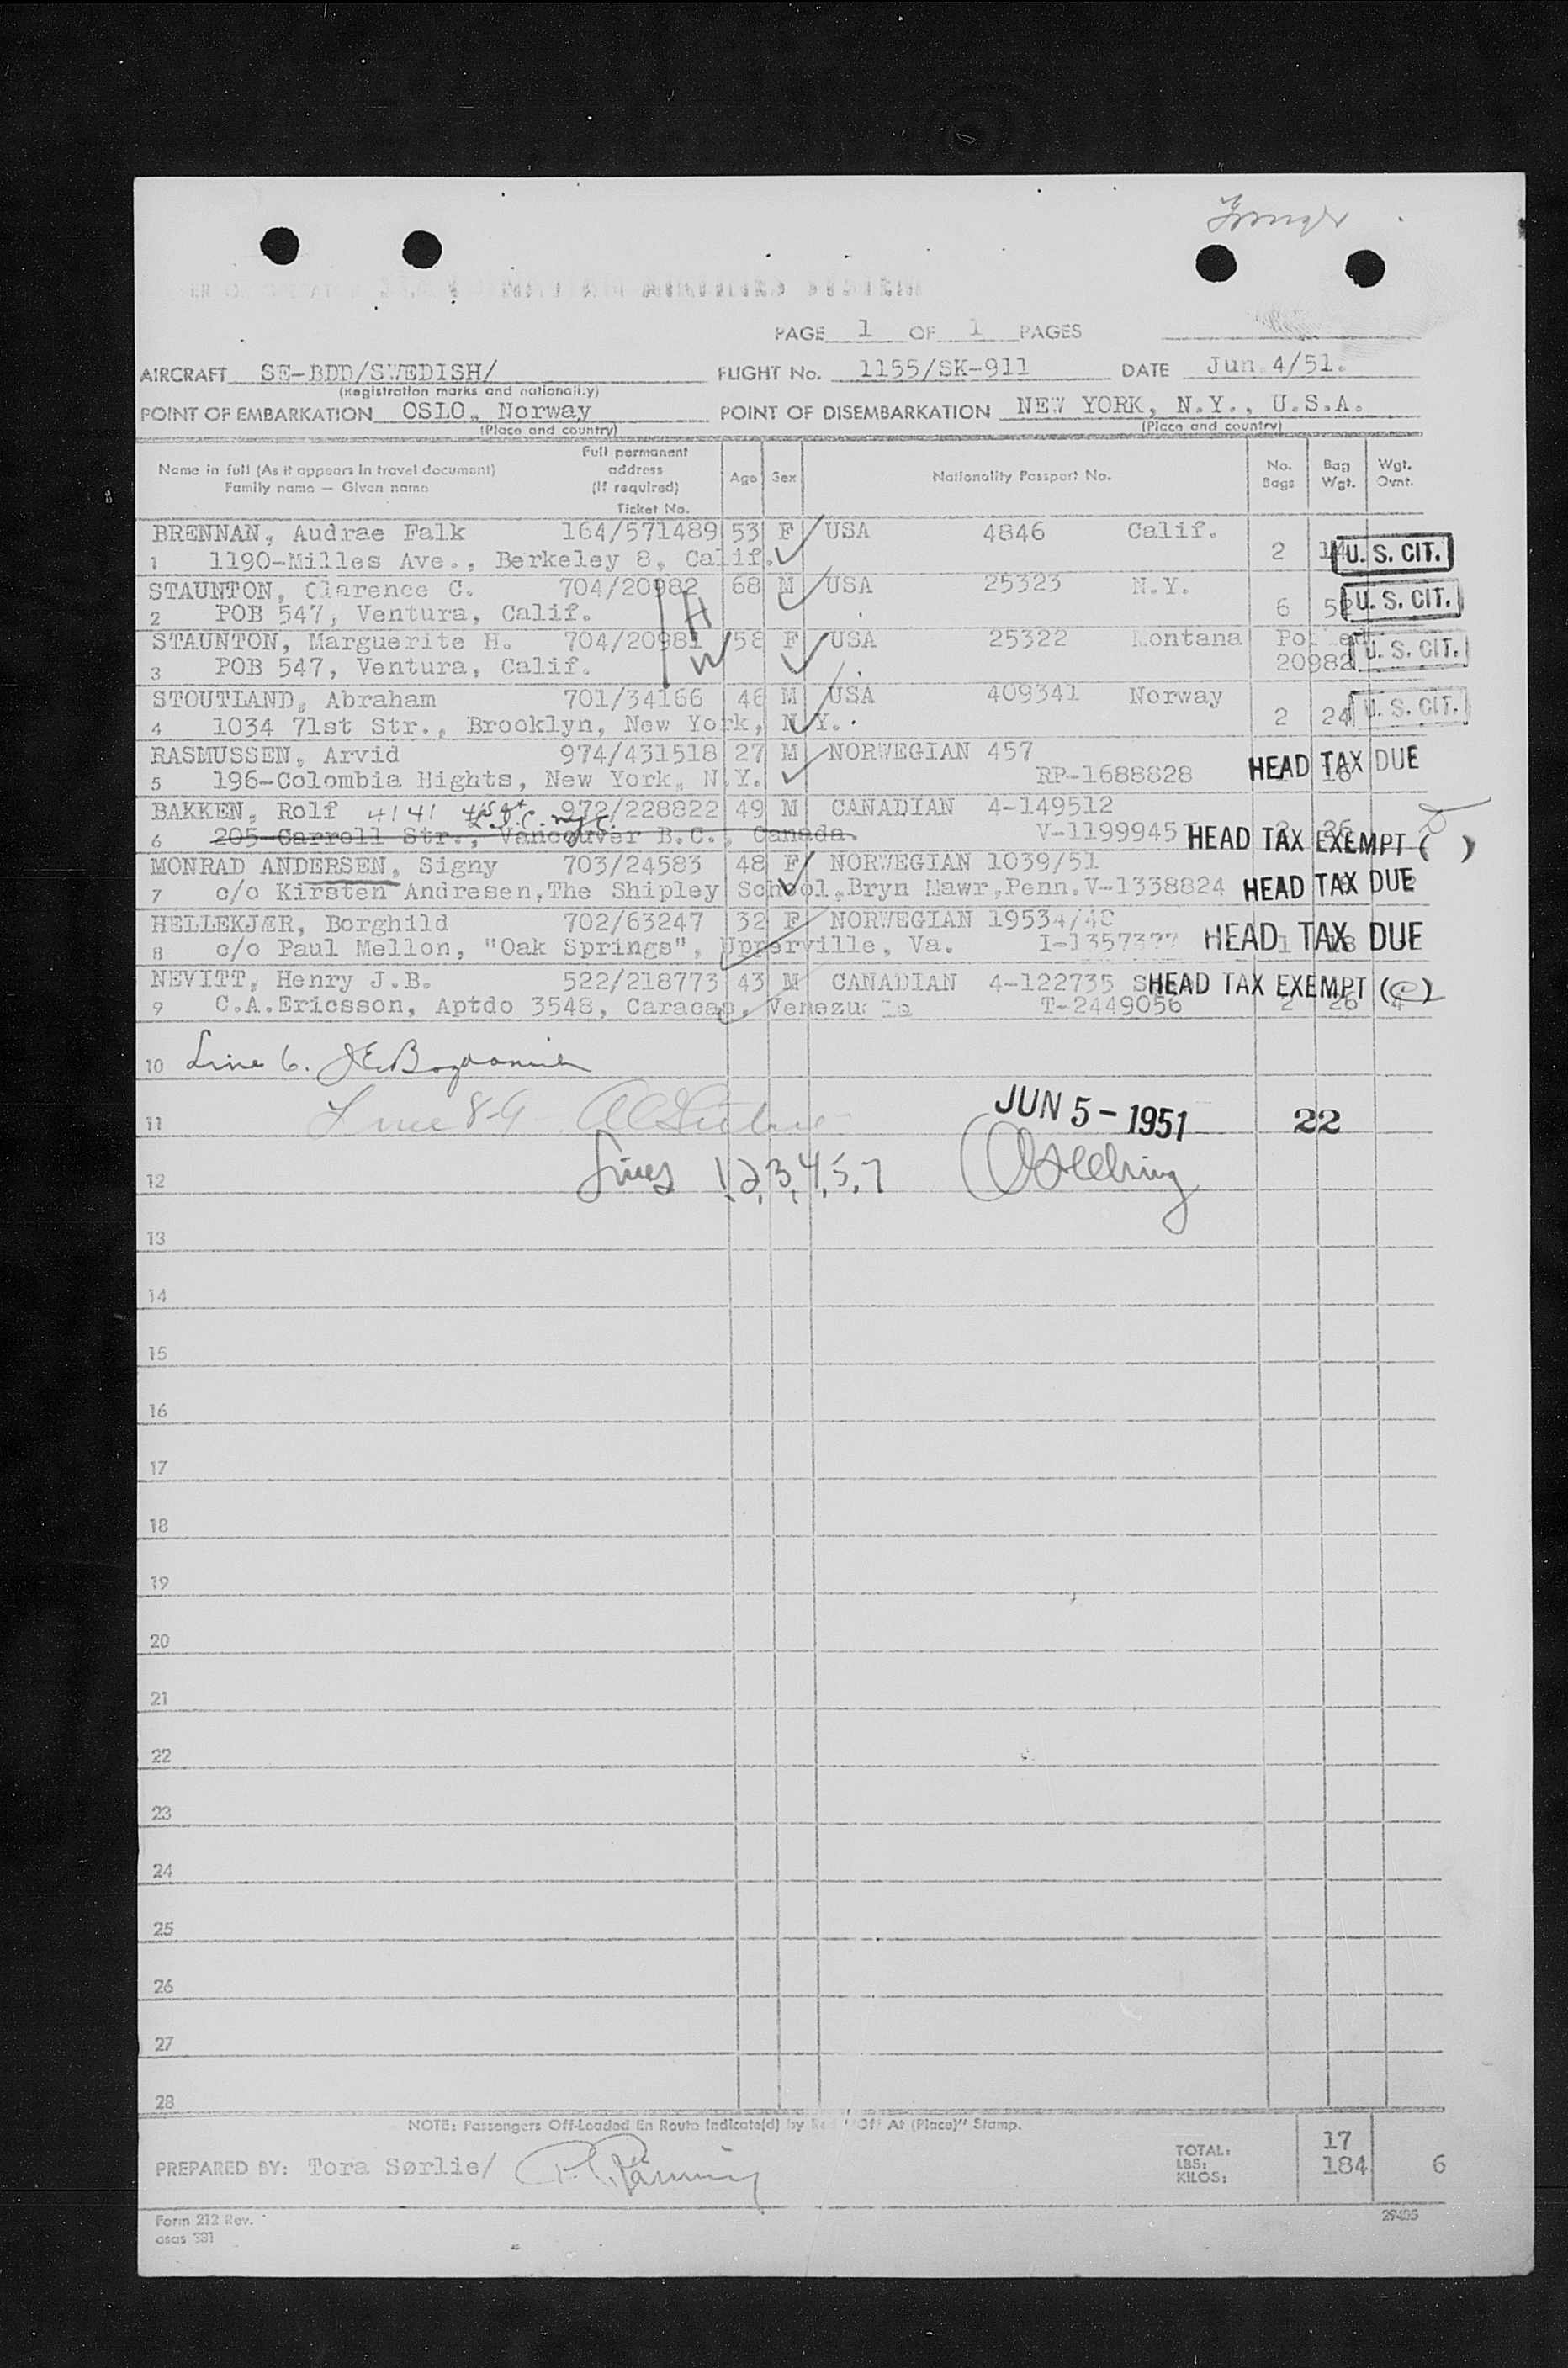 PAGE 1 OF 1 PAGES
AIRCRAFT SE-BDD/SWEDISH/ FLIGHT No. 1155/SK-911 DATE Jun 4/51.
(Registration marks and nationality)
POINT OF EMBARKATION OSLO, Norway POINT OF DISEMBARKATION NEW YORK, N.Y., U.S.A.
(Place and country) (Place and country)
Name in full (As it appears in travel document) Family name — Given name Full permanent address (If required) Ticket No. Age Sex Nationality Passport No. No. Bags Bag Wgt. Wgt. Ovnt.
BRENNAN, Audrae Falk 164/571489 53 F USA 4846 Calif.
1 1190-Milles Ave., Berkeley 8, Calif. 2 U. S. CIT.
STAUNTON, Clarence C. 704/20982 68 M USA 25323 N.Y.
2 POB 547, Ventura, Calif. H 6 U. S. CIT.
STAUNTON, Marguerite H. 704/20981 58 F USA 25322 Montana
3 POB 547, Ventura, Calif. W 20982 U. S. CIT.
STOUTLAND, Abraham 701/34166 46 M USA 409341 Norway
4 1034 71st Str., Brooklyn, New York, N.Y. 2 24 U. S. CIT.
RASMUSSEN, Arvid 974/431518 27 M NORWEGIAN 457
5 196-Colombia Hights, New York, N.Y. RP-1688828 HEAD TAX DUE
BAKKEN, Rolf 4141 972/228822 49 M CANADIAN 4-149512
6 205-Carroll Str., Vancouver B.C., Canada. HEAD TAX EXEMPT ( )
MONRAD ANDERSEN, Signy 703/24583 48 F NORWEGIAN 1039/51
7 c/o Kirsten Andresen,The Shipley School,Bryn Mawr,Penn. V-1338824 HEAD TAX DUE
HELLEKJÆR, Borghild 702/63247 32 F NORWEGIAN
8 c/o Paul Mellon, "Oak Springs", Upperville, Va. HEAD TAX DUE
NEVITT, Henry J.B. 522/218773 43 M CANADIAN 4-122735 HEAD TAX EXEMPT (C)
9 C.A.Ericsson, Aptdo 3548, Caracas, Venezuela T-2449056 2 26 4
10 Line 6.
11 Line 8-9 JUN 5-1951 22
12 Lines 1,2,3,4,5,7
13
14
15
16
17
18
19
20
21
22
23
24
25
26
27
28
NOTE: Passengers Off-Loaded En Route Indicate(d) by Red "Off At (Place)" Stamp.
PREPARED BY: Tora Sørlie/
TOTAL: 17
LBS:
KILOS: 184 6
Form 212 Rev.
osas 381